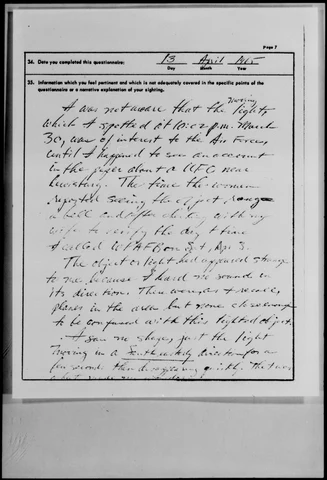 Page 7
34. Date you completed this questionnaire: 13 April 1965
Day Month Year
35. Information which you feel pertinent and which is not adequately covered in the specific points of the
questionnaire or a narrative explanation of your sighting.
I was not aware that the moving light,
which I spotted at 10:02 p.m. March
30, was of interest to the Air Force
until I happened to see an account
in the paper about a UFO near
The time the woman
reported seeing the object rang
a bell and after checking with my
wife to verify the day & time
I called WPAFB on Sat, Apr 3.
The object or light had appeared strange
to me, because I heard no sound in
its direction. There were, as I recall,
planes in the area but none close enough
to be confused with this lighted object.
I saw no shape, just the light
moving in a direction for a
few seconds then disappearing quickly. The two